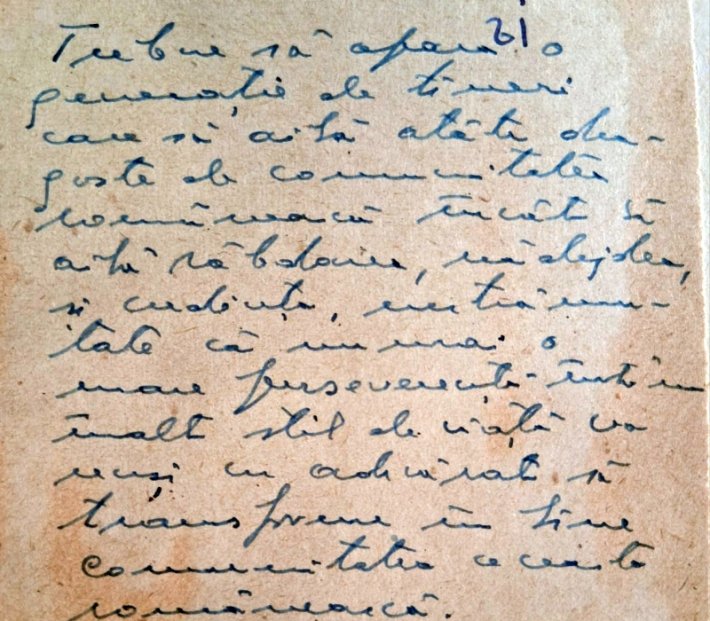 21
Trebue să apară o
generație de tineri
care să aibă atâta dra-
goste de comunitatea
românească încât să
aibă răbdarea, nădejdea,
și credința, nestrămu-
tate că numai o
mare perseverență într'un
înalt stil de viață va
reuși cu adevărat să
transforme în bine
comunitatea aceasta
românească.